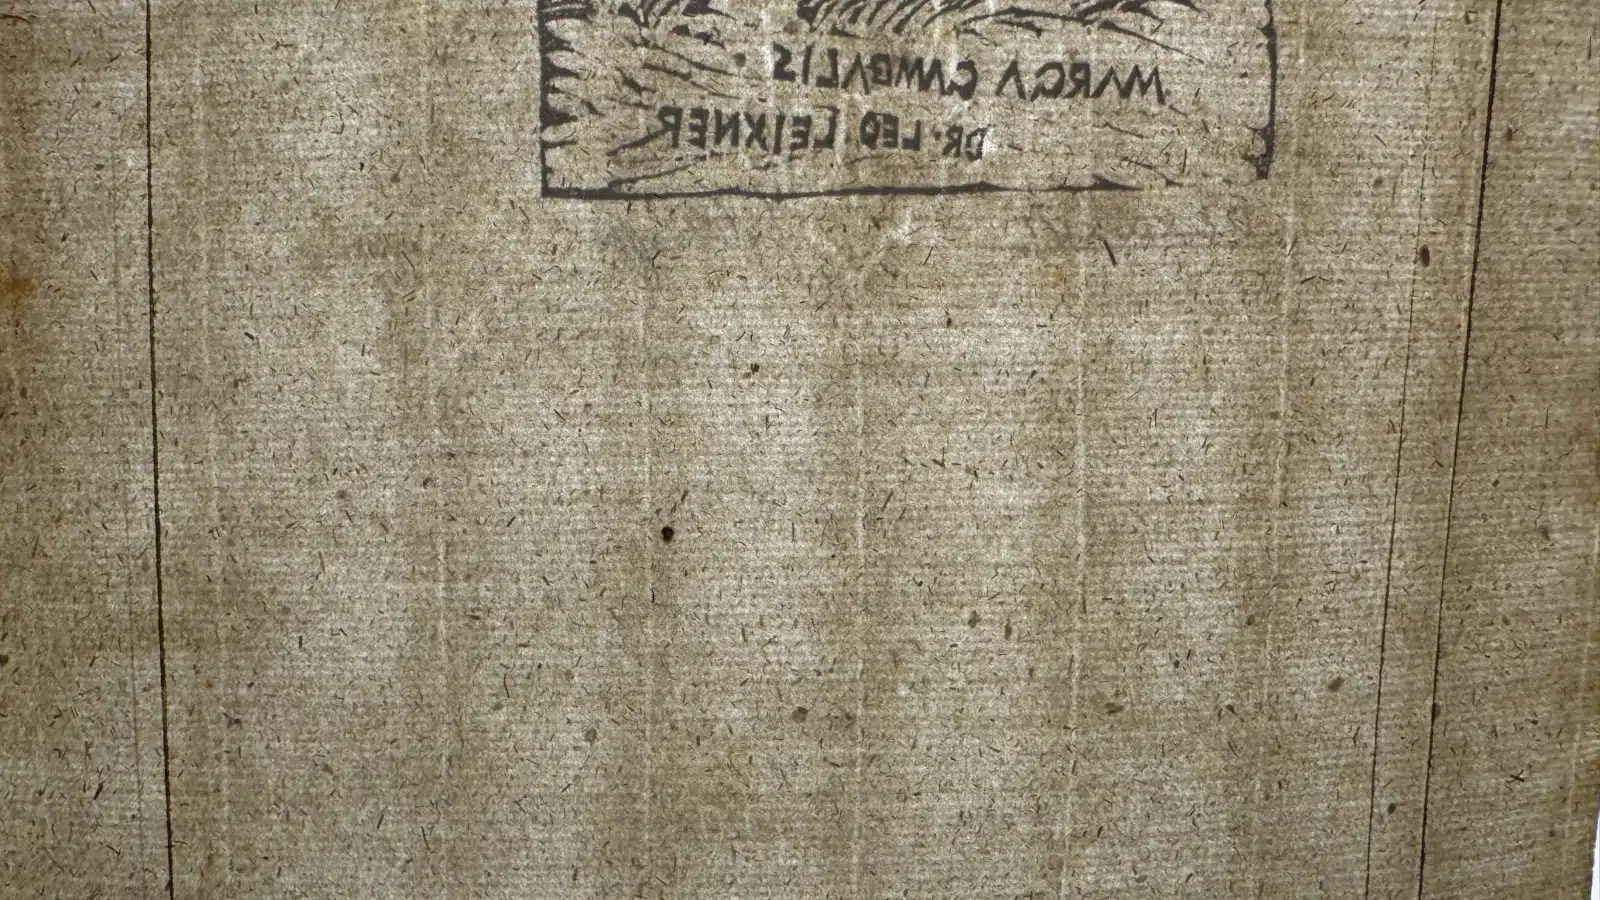 MARGA GAMBALIS
DR·LEO LEIXNER